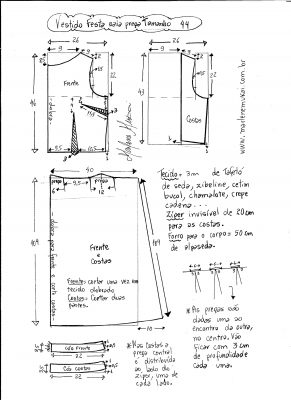 Vestido Festa saia prega Tamanho 44
26
9
26
9
Frente
22
46
43
22
dobra
Costas
9,5
12,5
www.marlenemukai.com.br
40
prega
9,5
prega
6
12
Tecido = 3m de Tafetá
de seda, xibeline, cetim
bucol, chamalote, crepe
cadena...
Zíper invisível de 20cm
para as costas.
Forro para o corpo = 50cm
de alpaseda.
Frente
e
Costas
Frente: cortar uma vez em
tecido dobrado
Costas: Cortar duas
partes.
10
* As pregas são
dadas uma ao
encontro da outra,
no centro. Vão
ficar com 3 cm
de profundidade
cada uma.
cós Frente
22
cós costas
22
* Nas costas a
prega central
é distribuída
ao lado do
zíper, uma de
cada lado.